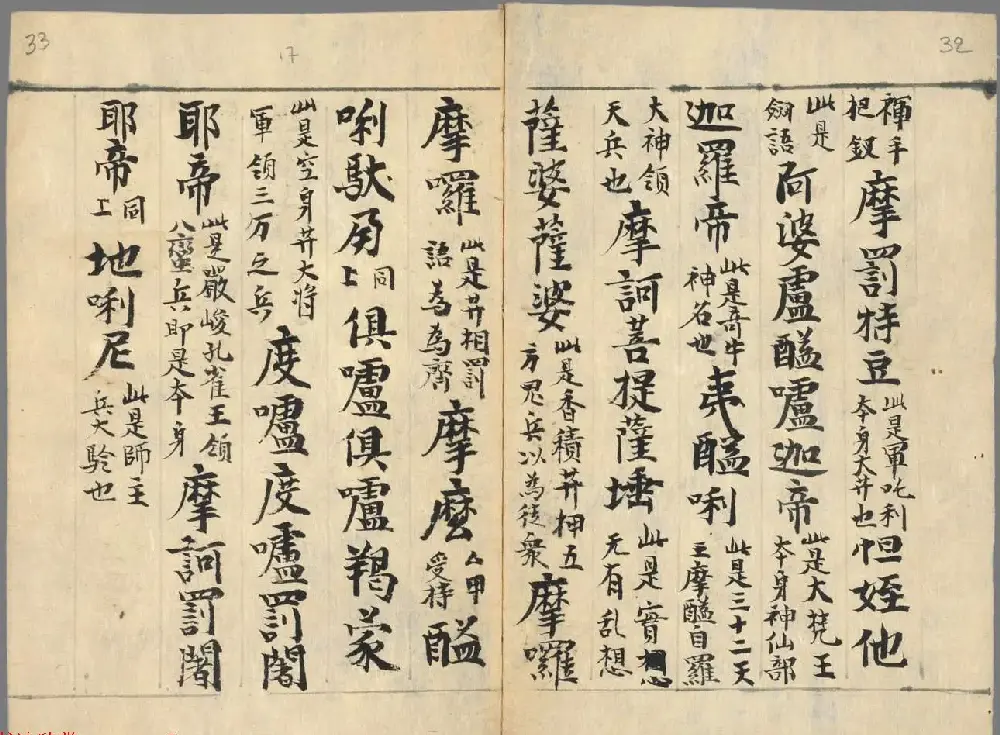 32
揮手把釼摩罰特豆此是軍吒利本身大菩也怛姪他
此是劔語阿婆盧醯嚧迦帝此是大梵王本身神仙部
迦羅帝此是奇牛神名也夷醯唎此是三十二天王摩醯自羅
大神領天兵也摩訶菩提薩埵此是實想无有乱想
薩婆薩婆此是香積菩押五方鬼兵以為徒衆摩囉
33
17
摩囉此是菩相罰語為為齊摩麽厶甲受持醯
唎馱孕同上俱嚧俱嚧羯蒙
此是空身菩大將軍領三万之兵度嚧度嚧罰闍
耶帝此是嚴峻孔雀王領八蠻兵即是本身摩訶罰闍
耶帝同上地唎尼此是師主兵大驗也